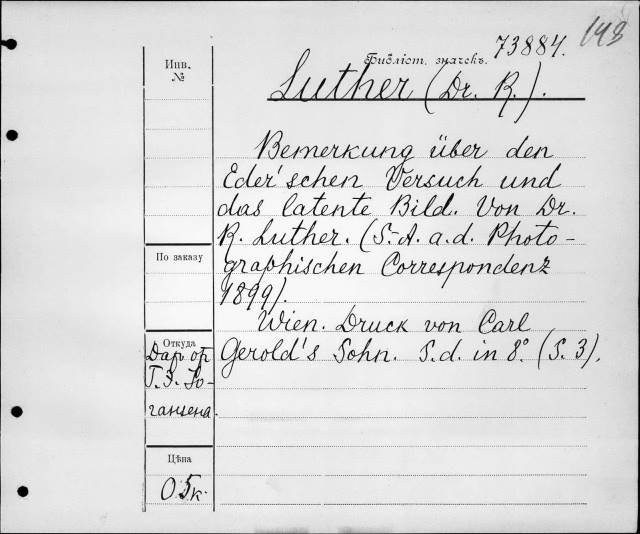 143
73884.
Инв.
№
Библіот. значекъ.
Luther (Dr. R.).
Bemerkung über den
Eder'schen Versuch und
das latente Bild. Von Dr.
R. Luther. (S.-A. a. d. Photo-
graphischen Correspondenz
1899).
Wien. Druck von Carl
Gerold's Sohn. S.d. in 8°. (S. 3).
По заказу
Откуда
Дар от
Г. Э. Іо-
гансена.
Цѣна
05к.